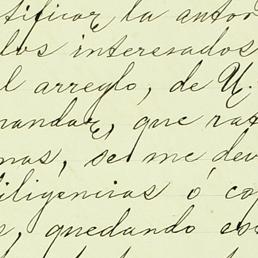 tificar la autor
los interesados
l arreglo, de U.
mandar, que rat
mas, se me dev
iligencias ó co
s, quedando es